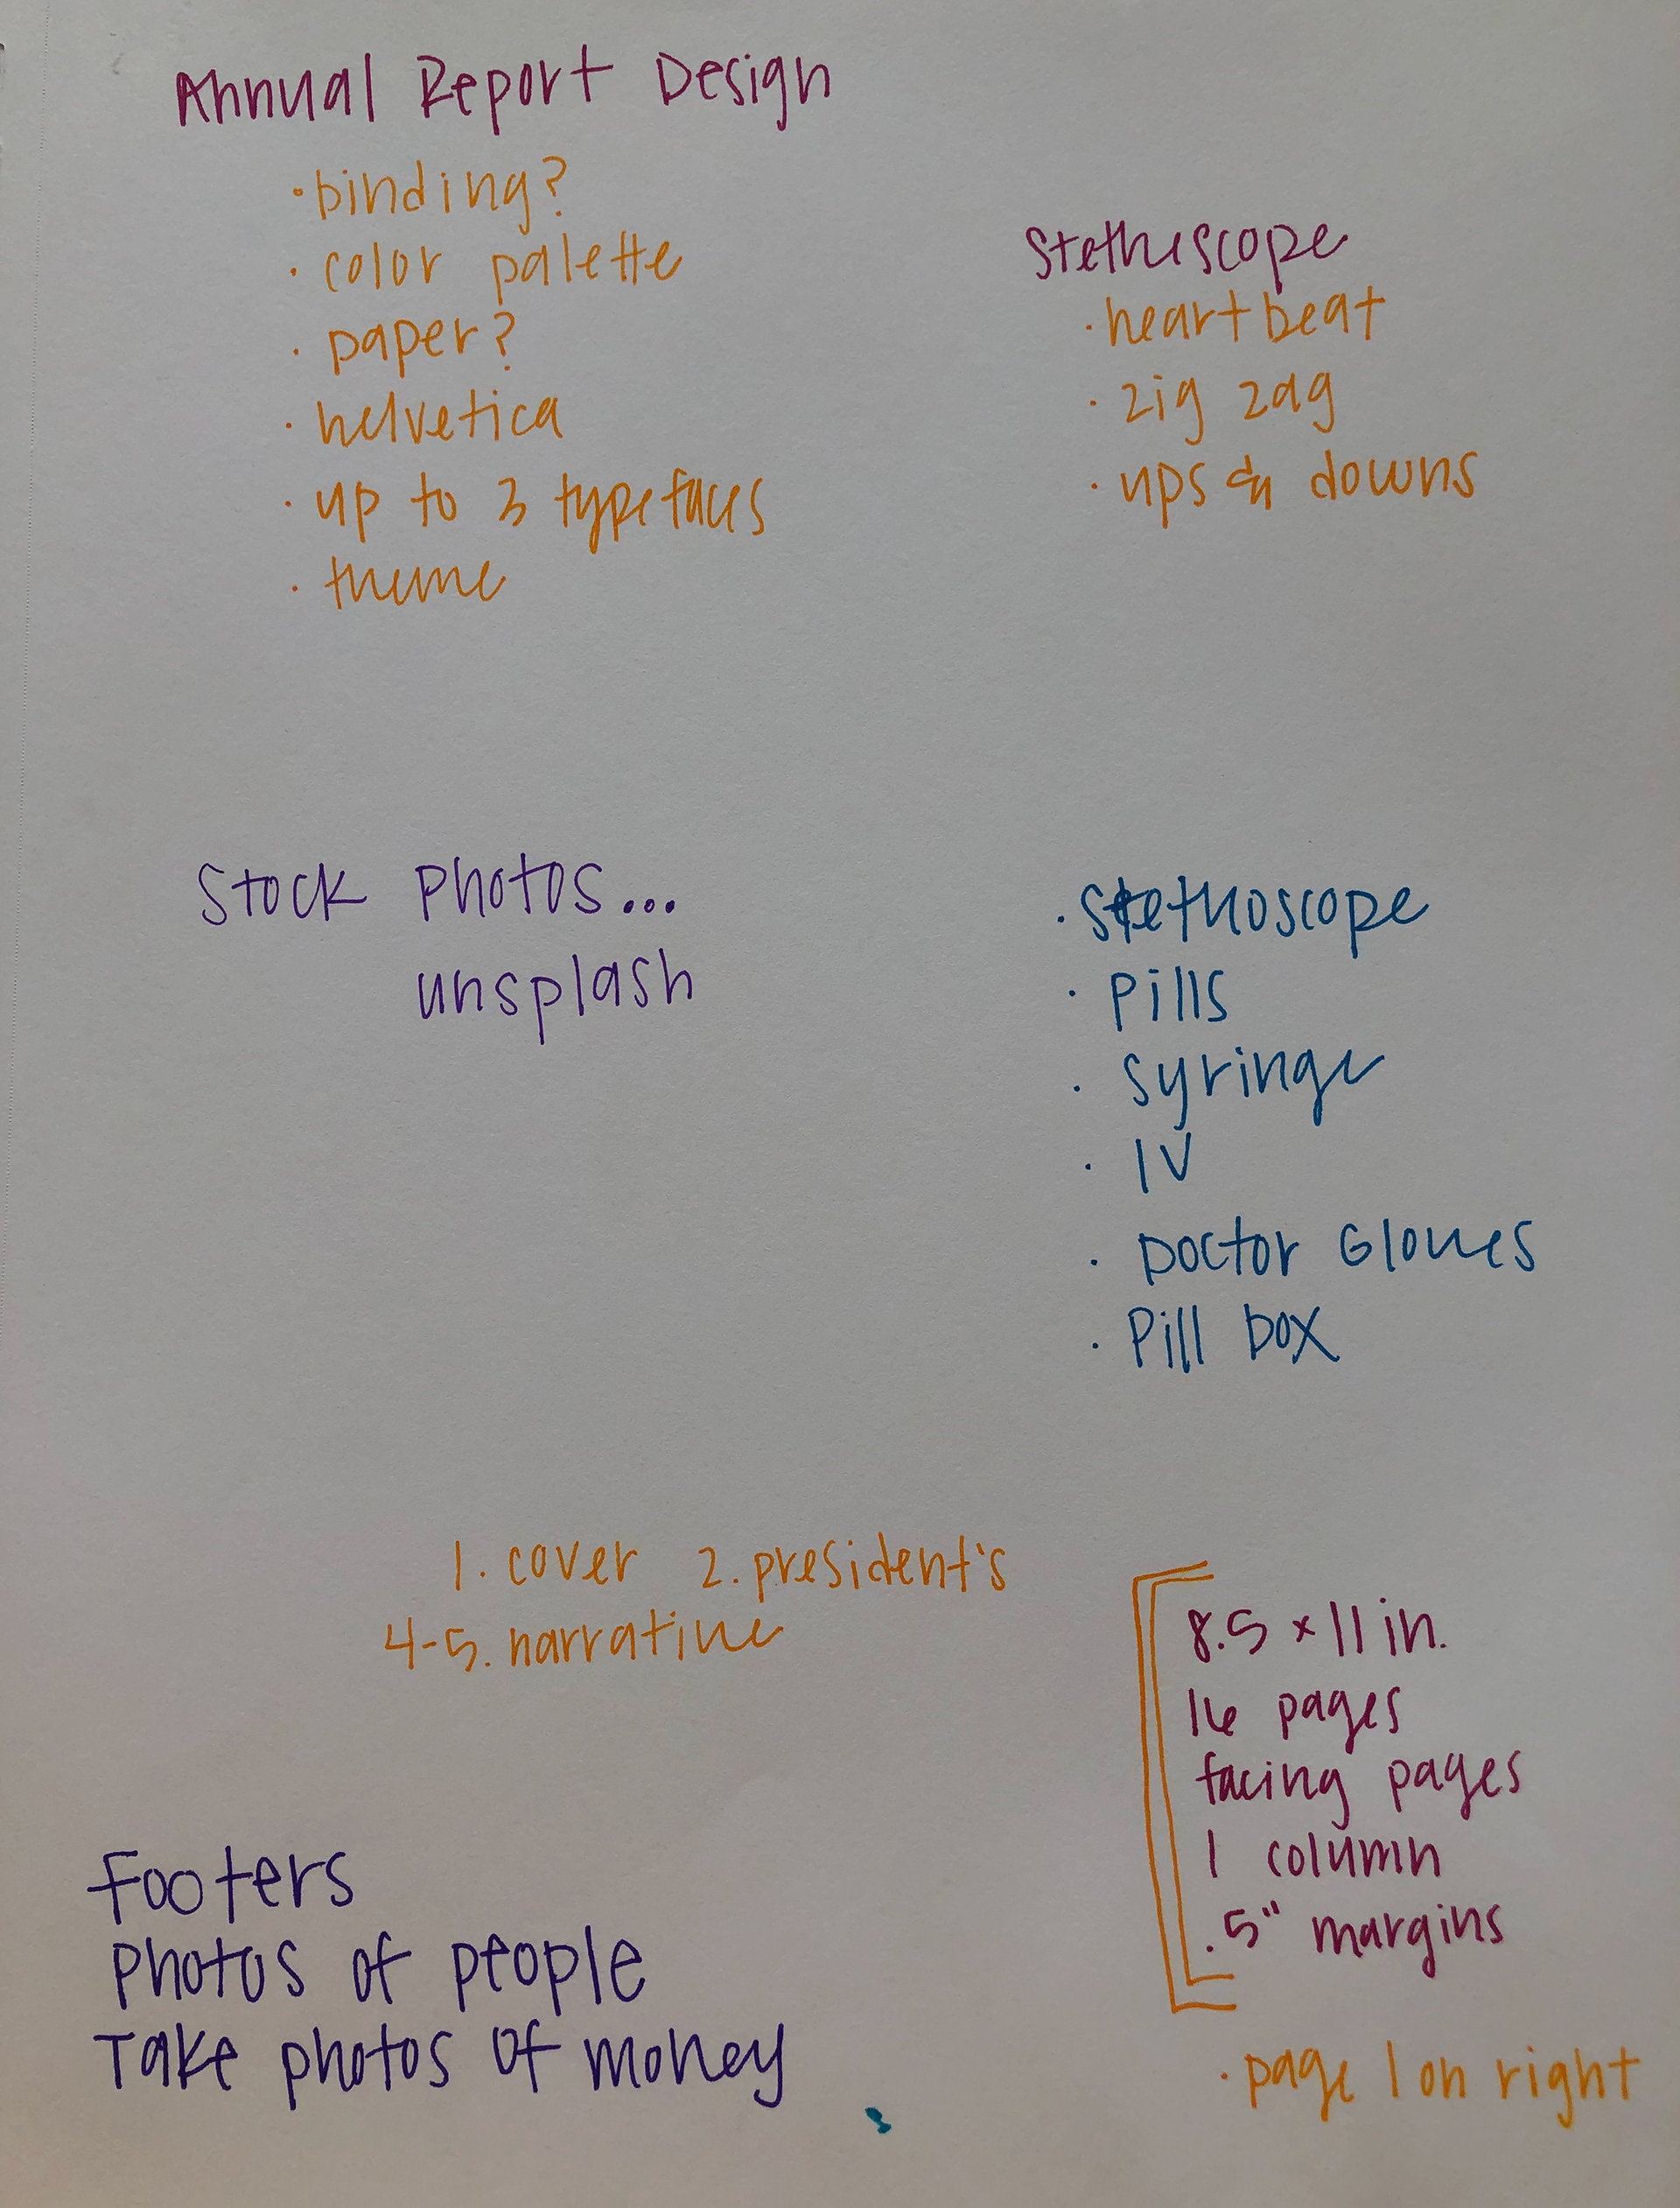 Annual Report Design
· binding?
· color palette
· paper?
· helvetica
· up to 3 typefaces
· theme
Stethiscope
· heartbeat
· zig zag
· ups & downs
Stock Photos...
unsplash
· Stethoscope
· Pills
· Syringe
· IV
· Doctor Gloves
· Pill box
1. cover 2. president's
4-5. narrative
8.5 x 11 in.
16 pages
facing pages
1 column
.5" margins
· page 1 on right
Footers
Photos of people
Take photos of money